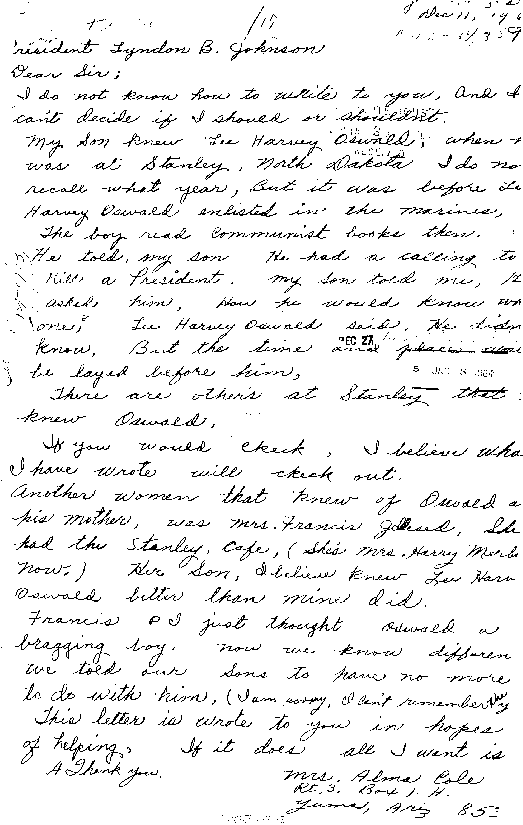 /17
Dec 11, 196
resident Lyndon B. Johnson
Dear Sir;
I do not know how to write to you, And I
cant decide if I should or shouldnt.
My Son knew Lee Harvey Oswald, when
was at Stanley, North Dakota I do no
recall what year, but it was before Le
Harvey Oswald enlisted in the marines,
The boy read Communist books then.
He told, my son He had a calling to
Kill a President. my son told me, H
asked him, How he would know wh
one, Lee Harvey Oswald said. He didn
know, But the time and place
DEC 27
be layed before him,
5 JAN 8 1964
There are others at Stanley that
knew Oswald.
If you would check, I believe wha
I have wrote will check out.
Another women that knew of Oswald a
his mother, was mrs. Francis She
had the Stanley, Cafe, (She's mrs. Harry Merb
now.) Her Son, I believe knew Lee Harv
Oswald better than mine did.
Francis & I just thought Oswald a
bragging boy. now we know differen
we told our Sons to have no more
to do with him, (I am sorry, I cant remember
This letter is wrote to you in hopes
of helping, If it does all I want is
A Thank you.
Mrs. Alma Cole
Rt. 3. Box 1. H.
Yuma, Ariz 85